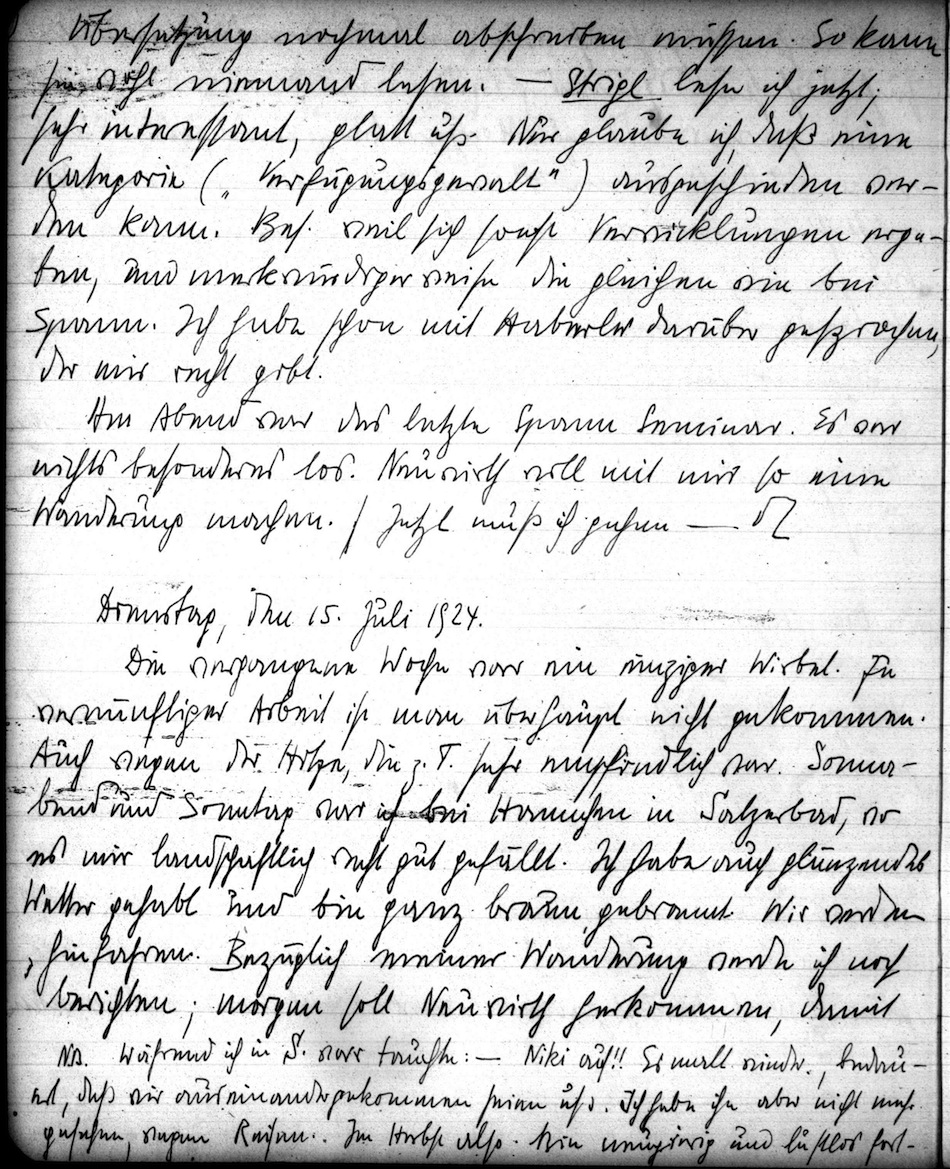 Übersetzung nochmal abschreiben müssen. So kann
sie wohl niemand lesen. — Strigl lese ich jetzt;
sehr interessant, glatt usf. Nur glaube ich, daß eine
Kategorie („Verfügungsgewalt") ausgeschieden wer-
den kann. Bes. weil sich sonst Verwicklungen erge-
ben, und merkwürdigerweise die gleichen wie bei
Spann. Ich habe schon mit Haberler darüber gesprochen,
der mir recht gibt.
Am Abend war das letzte Spann Seminar. Es war
nichts besonderes los. Neuwirth will mit mir so eine
Wanderung machen. / Jetzt muß ich gehen —
Dienstag, den 15. Juli 1924.
Die vergangene Woche war ein einziger Wirbel. Zu
vernünftiger Arbeit ist man überhaupt nicht gekommen.
Auch wegen der Hitze, die z. T. sehr empfindlich war. Sonna-
bend und Sonntag war ich bei Hannchen in Salzerbad, wo
es mir landschaftlich recht gut gefällt. Ich habe auch glänzendes
Wetter gehabt und bin ganz braun gebrannt. Wir werden
hinfahren. Bezüglich meiner Wanderung werde ich noch
berichten; morgen soll Neuwirth herkommen, damit
NB. Während ich in S. war tauchte: — Niki auf!! Er wollte wieder., bedau-
ert, daß wir auseinandergekommen seien usf. Ich habe ihn aber nicht mehr
gesehen, wegen Reisen.. Im Herbst also. Bin neugierig und lustlos fort-